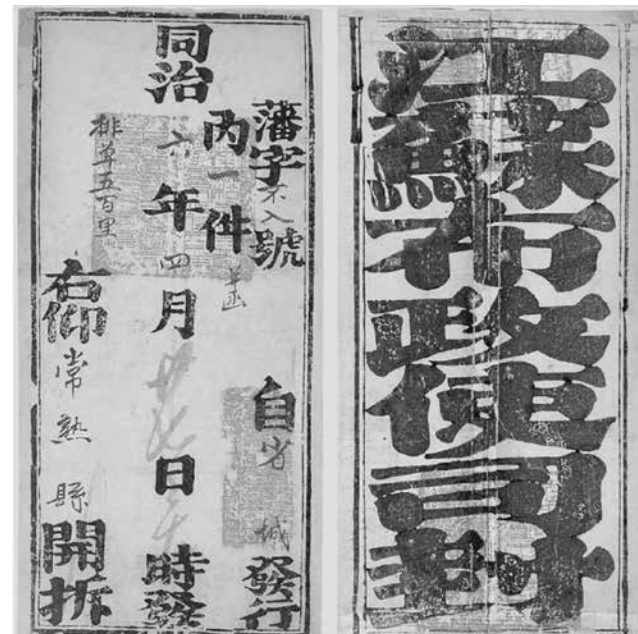 江蘇布政使司封
藩字不入號
自省城發行
內一件
同治六年四月廿七日 時發
排單五百里
右仰常熟縣開拆